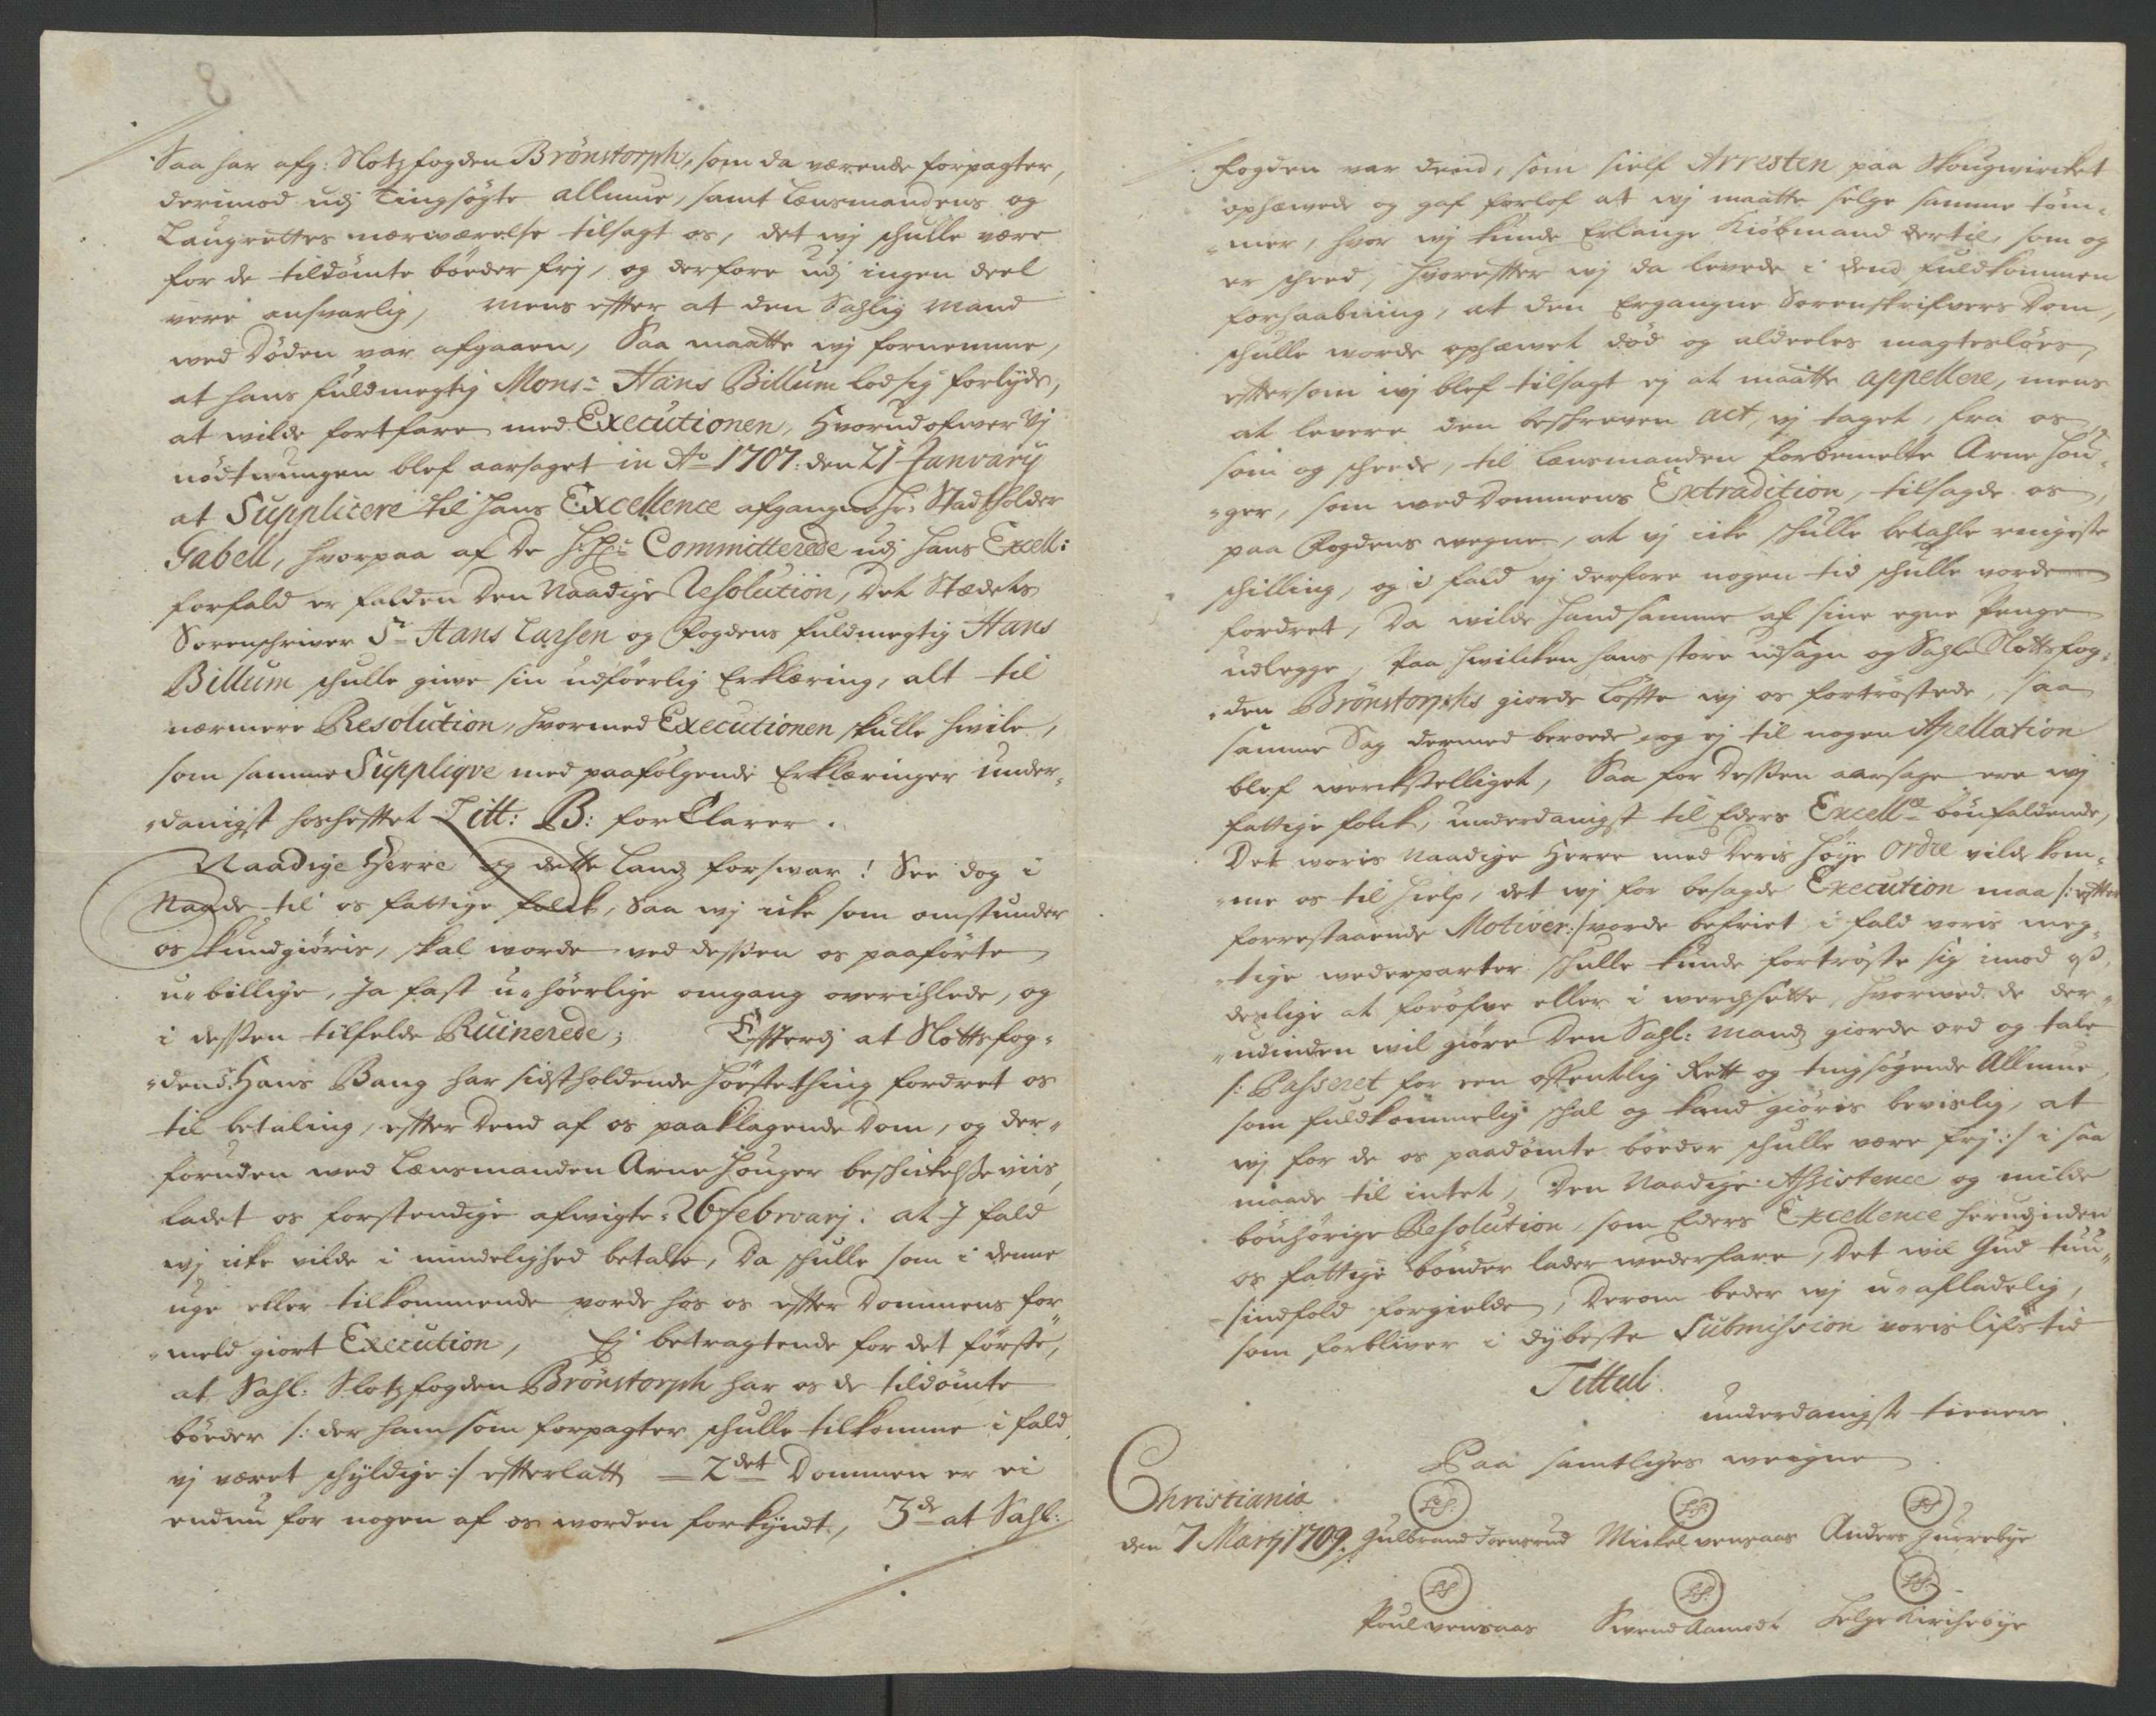 Saa har afg: Slotzfogden Brönstorph, som da værende forpagter,
derimod udj Tingsøgte allmue, samt Lænsmandens og
Laugrettes nærværelse tilsagt os, det wj schulle være
for de tildømte bøeder frj, og derfore udj ingen deel
være ansvarlig, mens effter at den Sahlig mand
wed Døden var afgaaen, Saa maatte wj fornemme,
at hans fuldmegtig Monsr Hans Billum lod sig forlyde,
at wilde fortfare med Executionen, Hvorudofwer Vj
nødtwungen blef aarsaget in Ao 1707: den 21 January
at Supplicere til Hans Excellence afgangne Hr: Stadtholder
Gabell, hvorpaa af De Committerede udj Hans Excell:
forfald er falden Den Naadige Resolution, Det Stædets
Sorenschriver Sr Hans Larsen og Fogdens fuldmegtig Hans
Billum schulle give sin udførlig Erklæring, alt til
nærmere Resolution, hvormed Executionen skulle hwile,
som samme Suppliqve med paafølgende Erklæringer under„
„danigst hoshefftet Litt: B: forklarer.
Naadige Herre og dette Landz forswar! See dog i
Naade til os fattige folck, Saa wj icke som omstunder
os kundgiøris, skal worde ved dessen os paaførte
u„billige, Ja fast u„hørlige omgang overichlede, og
i dessen tilfelde Ruinerede; Effterdj at Slottsfog„
„den Sr. Hans Bang har sidstholdende Høstething fordret os
til betaling, effter Dend af os paaklagende Dom, og der„
foruden wed Lænsmanden Arne Houger beschickelse viis,
ladet os forstendige afwigte 26 Febrvarj: at J fald
wj icke vilde i mindelighed betale, Da schulle som i denne
uge eller tilkommende vorde hos os effter Dommens for„
„meld giort Execution, Ej betragtende for det første,
at Sahl: Slotzfogden Brönstorph har os de tildømte
bøeder /: der ham som forpagter schulle tilkomme i fald
vj været schyldige :/ effterlatt 2det Dommen er ei
endnu for nogen af os worden forkyndt, 3de at Sahl:
Fogden var dend, som sielf Arresten paa Skougwircket
ophæwede og gaf forlof at wj maatte selge samme tøm„
„mer, hvor wj kunde Erlange Kiøbmand dertil, som og
er scheed, Hvoreffter wj da levede i dend fuldkommen
forhaabning, at den Ergangne Sorenskrifvers Dom,
schulle worde ophæwet død og aldeeles magtesløes,
efftersom wj blef tilsagt ej at maatte appellere, mens
at levere den beskreven act, vj taget, fra os,
som og scheede, til Lænsmanden forbemelte Arne Hou„
„ger, som wed Dommens Extradition, tilsagde os,
paa Fogdens wegne, at vj icke schulle betahle ringeste
schilling, og i fald vj derfore nogen tid schulle vorde
fordret, Da wilde Hand samme af sine egne Penge
udlegge, Paa Hwilcken hans store udsagn og Sahl: Slottsfog„
„den Brönstorphs giorde Løffte wj os fortrøstede, saa
samme Sag dermed beroede og ej til nogen Apellation
blef werckstelliget, Saa for Dessen aarsage ere wj
fattige folck, underdanigst til Eders Excellce bønfaldende,
Det woris Naadige Herre med Deris Høye Ordre vilde kom„
„me os til Hielp, det wj for besagde Execution maa /: effter
forrestaaende Motiver :/ vorde befriet i fald voris meg„
„tige wederparter schulle kunde fortrøste sig imod os
deelige at forøfve eller i werchsette, Hvorwed de der„
„udinden wil giøre Den Sahl: mands giorde ord og tale
/: Passeret for een offentlig Rett og tingsøgende Allmue,
som fuldkommelig schal og kand giøris bevislig, at
wj for de os paadømte bøeder schulle være frj :/ i saa
maade til intet, Den Naadige Assistence og milde
bønhørige Resolution, som Eders Excellence herudinden
os fattige bønder lader wederfare, Det wil Gud tuu„
„sindfold forgielde, Derom beder wj u„afladelig,
som forbliver i dybeste Submission voris lifs tid
Tittul.
underdanigste tienere
Paa samtliges weigne
Christiania
den 7 Marij 1709. Gulbrand Joensrud Mickel vensaas Anders Hurrebye
LS. LS. LS.
LS. LS. LS.
Poul vensaas Swend Aamodt Helge Kircheøye